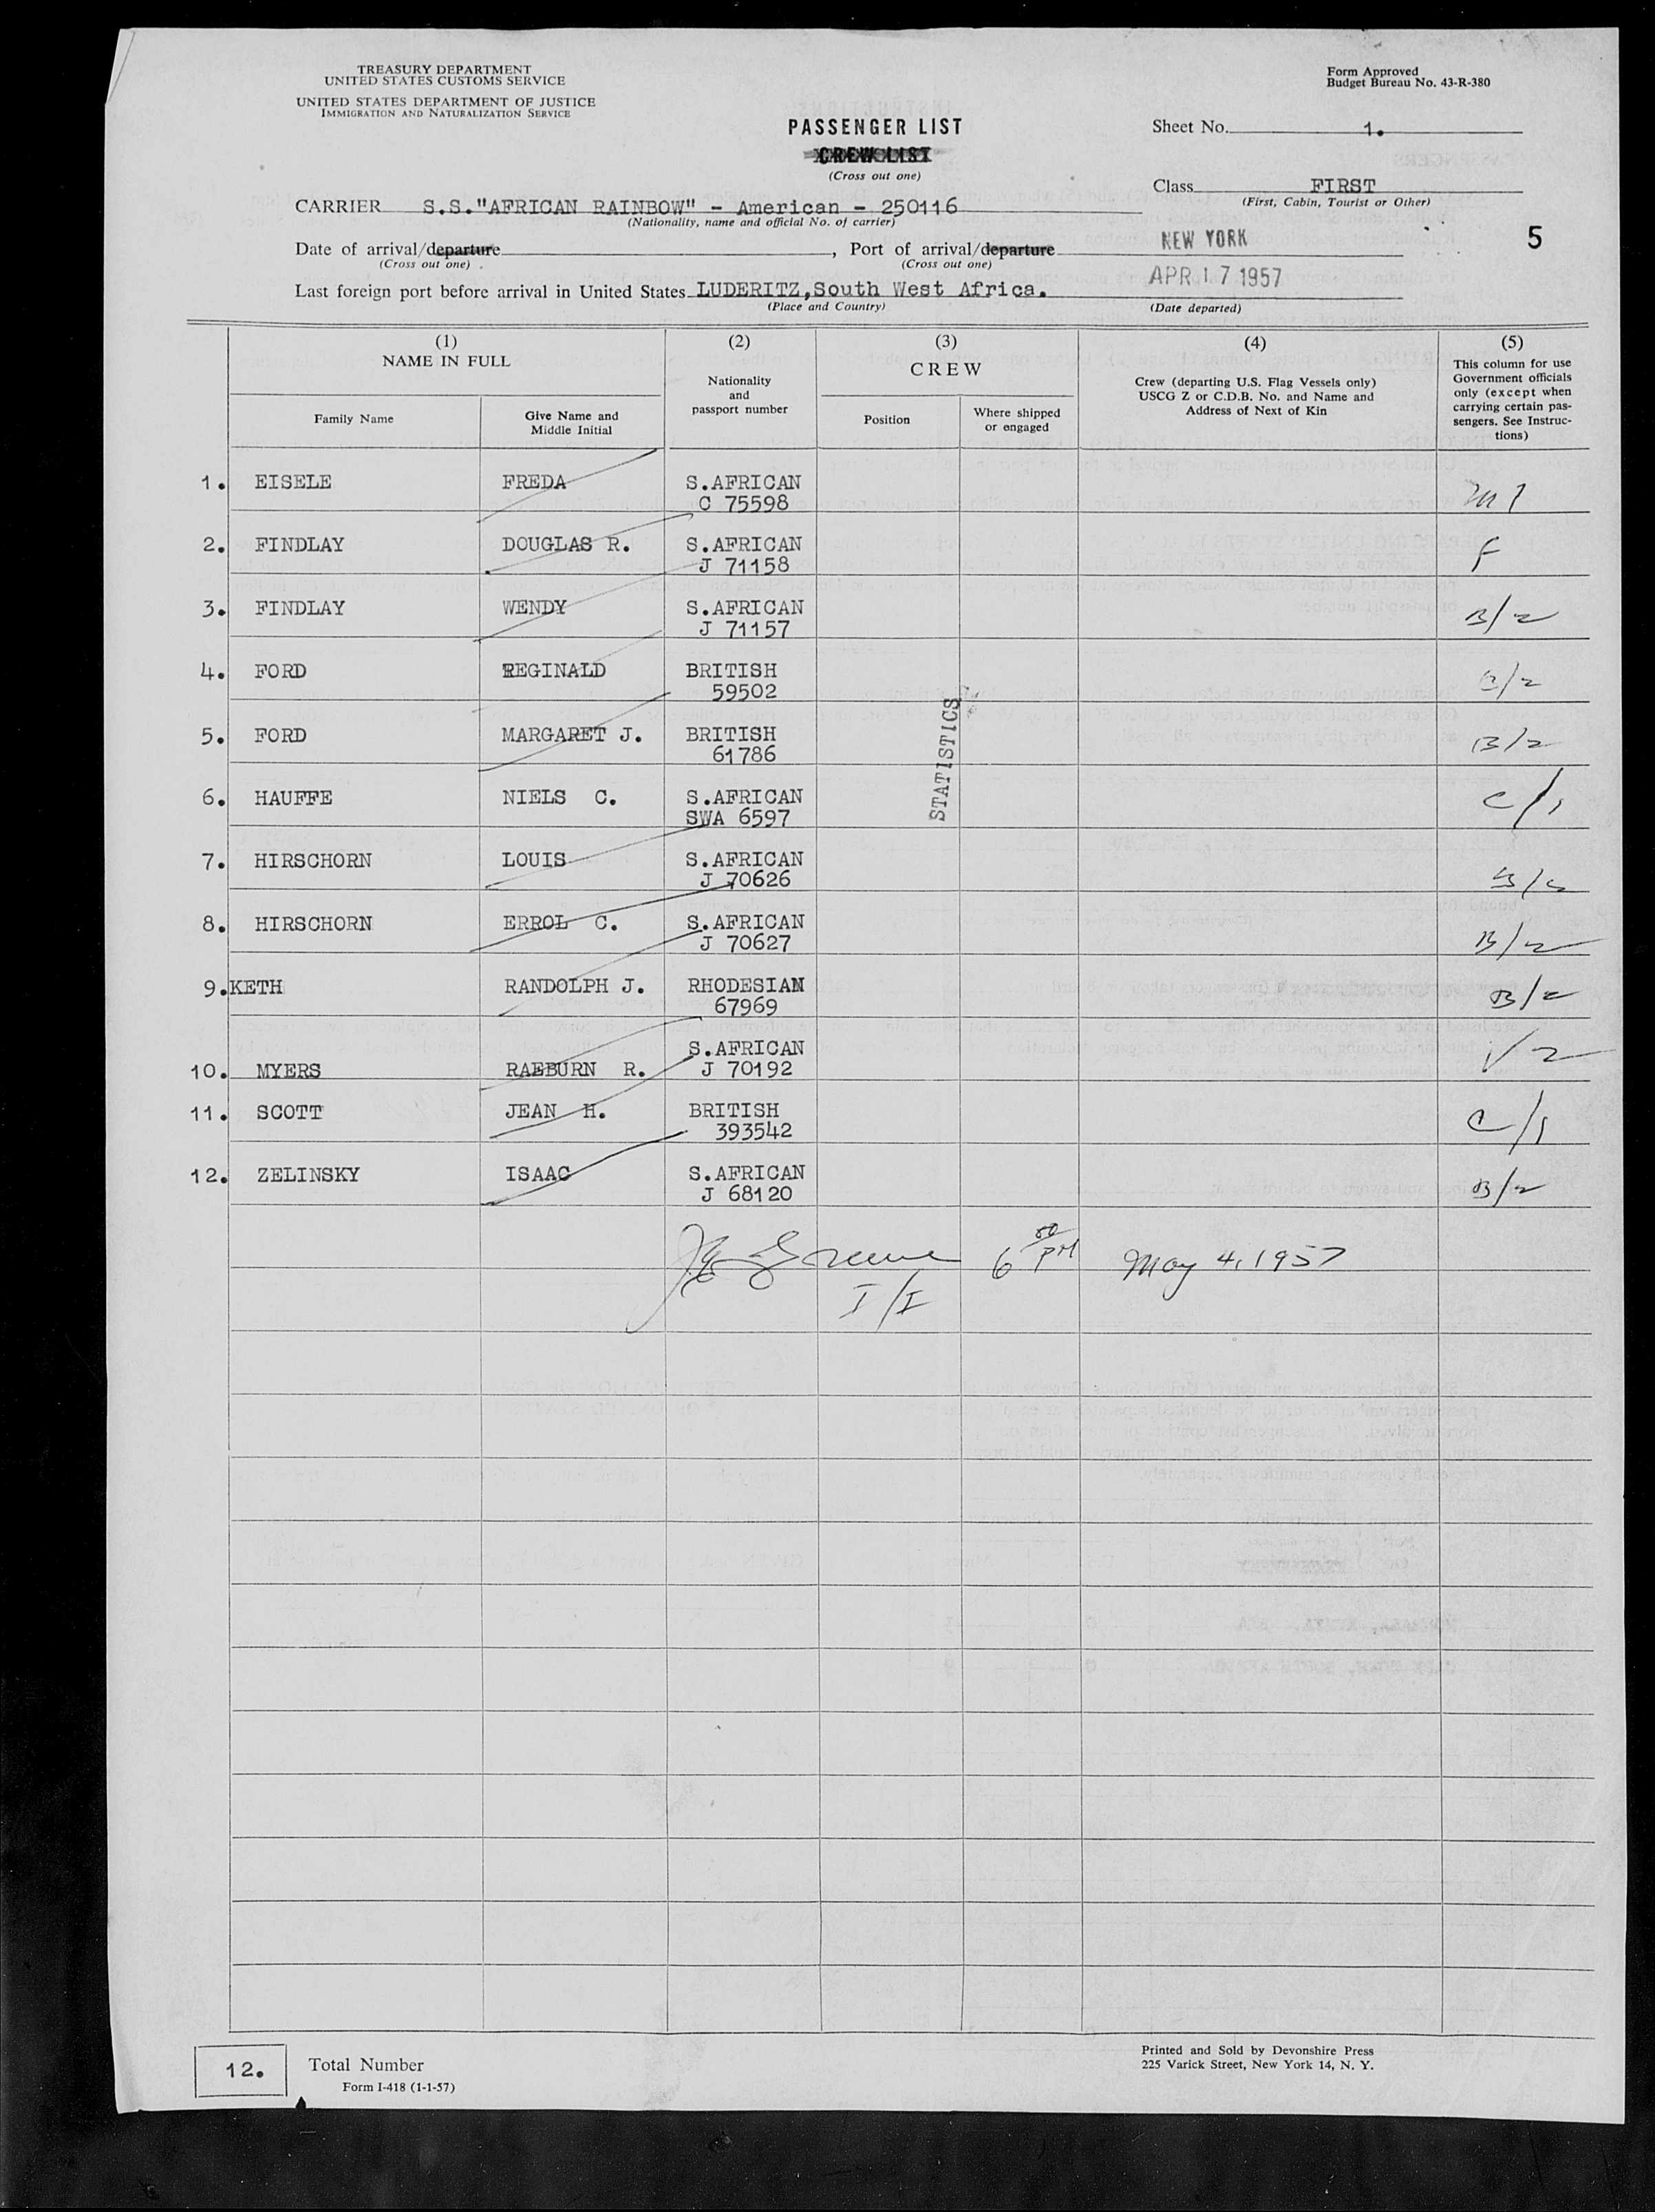 TREASURY DEPARTMENT
UNITED STATES CUSTOMS SERVICE
UNITED STATES DEPARTMENT OF JUSTICE
IMMIGRATION AND NATURALIZATION SERVICE
Form Approved
Budget Bureau No. 43-R-380
PASSENGER LIST
CREW LIST
(Cross out one)
Sheet No. 1.
Class FIRST
(First, Cabin, Tourist or Other)
CARRIER S.S."AFRICAN RAINBOW" - American - 250116
(Nationality, name and official No. of carrier)
Date of arrival/departure , Port of arrival/departure NEW YORK 5
(Cross out one) (Cross out one)
Last foreign port before arrival in United States LUDERITZ,South West Africa. APR 17 1957
(Place and Country) (Date departed)
(1) (2) (3) (4) (5)
NAME IN FULL
Family Name
Give Name and
Middle Initial
Nationality
and
passport number
CREW
Position
Where shipped
or engaged
Crew (departing U.S. Flag Vessels only)
USCG Z or C.D.B. No. and Name and
Address of Next of Kin
This column for use
Government officials
only (except when
carrying certain pas-
sengers. See Instruc-
tions)
1. EISELE FREDA S.AFRICAN
C 75598
2. FINDLAY DOUGLAS R. S.AFRICAN F
J 71158
3. FINDLAY WENDY S.AFRICAN B/2
J 71157
4. FORD REGINALD BRITISH
59502
5. FORD MARGARET J. BRITISH B/2
61786
STATISTICS
6. HAUFFE NIELS C. S.AFRICAN C/1
SWA 6597
7. HIRSCHORN LOUIS S.AFRICAN
J 70626
8. HIRSCHORN ERROL C. S.AFRICAN B/2
J 70627
9.KETH RANDOLPH J. RHODESIAN B/2
67969
S.AFRICAN
10. MYERS RAEBURN R. J 70192
11. SCOTT JEAN H. BRITISH C/1
393542
12. ZELINSKY ISAAC S.AFRICAN B/2
J 68120
6 50 PM May 4, 1957
I/I
12. Total Number
Form I-418 (1-1-57)
Printed and Sold by Devonshire Press
225 Varick Street, New York 14, N. Y.